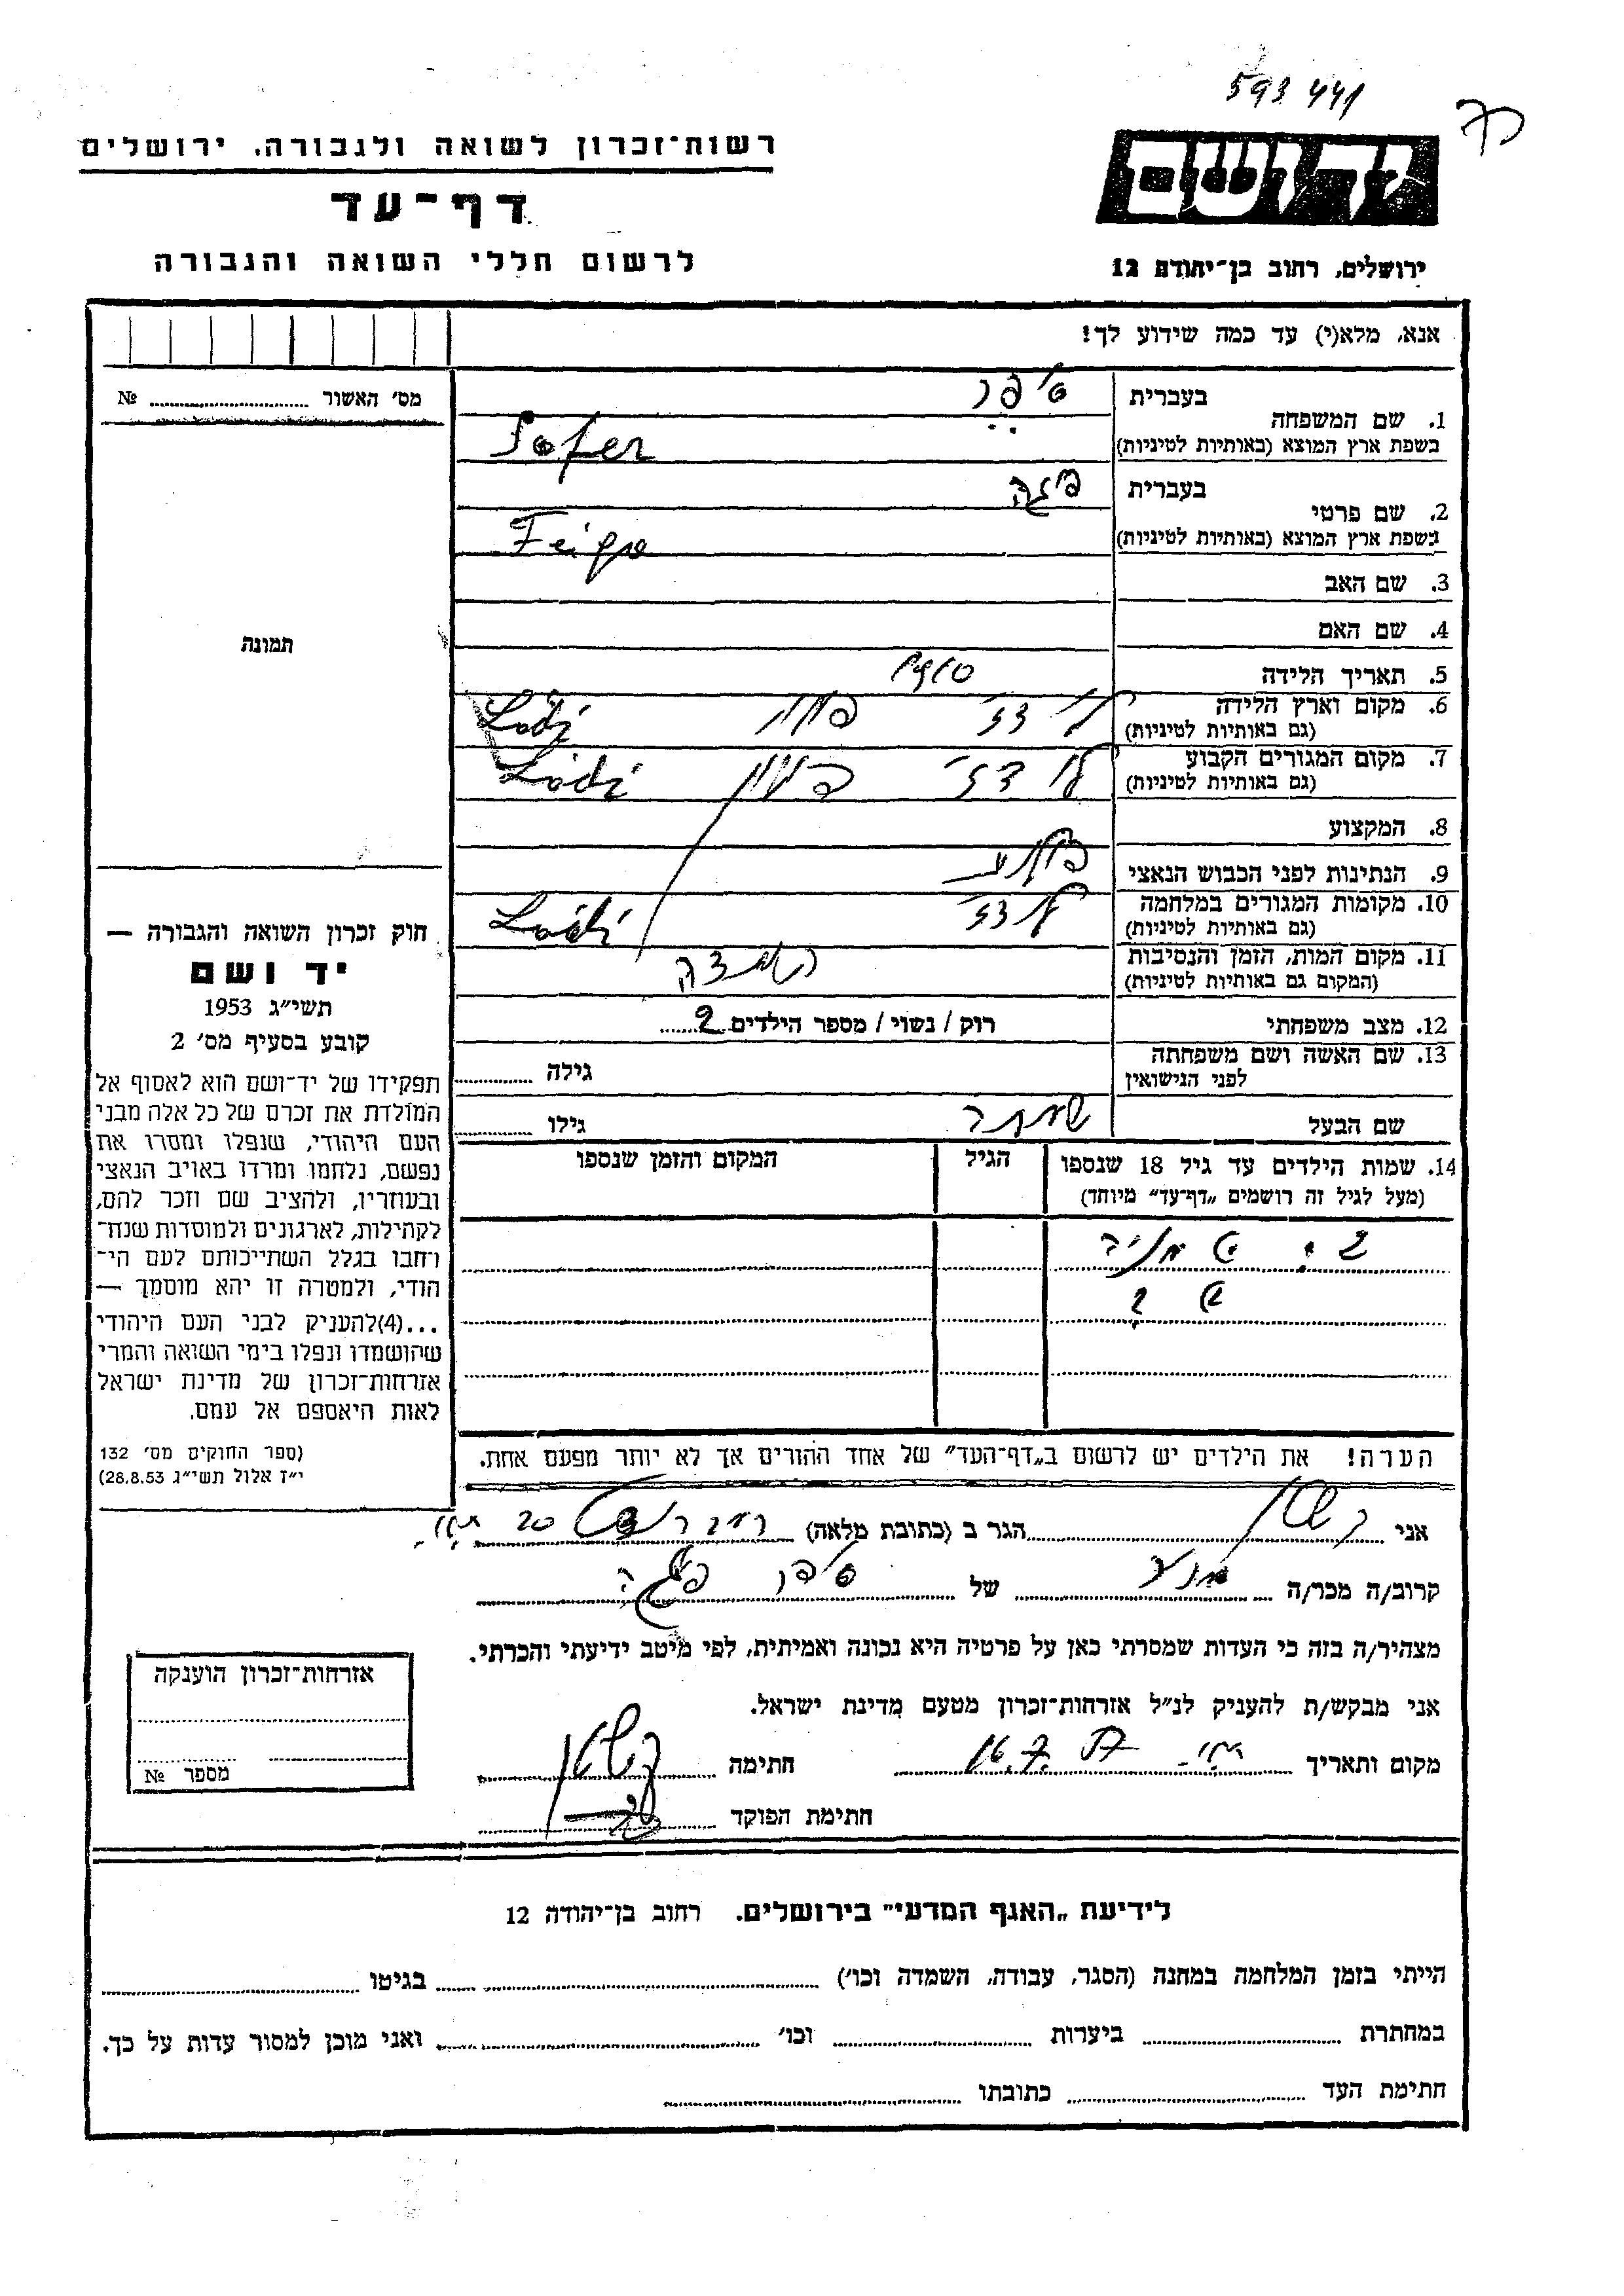 593 441
רשות־זכרון לשואה ולגבורה, ירושלים
דף־עד
לרשום חללי השואה והגבורה
יד ושם
ירושלים, רחוב בן־יהודה 12
אנא, מלא(י) עד כמה שידוע לך!
מס׳ האשור № 
1. שם המשפחה
בעברית סופר
בשפת ארץ המוצא (באותיות לטיניות) Sofer
2. שם פרטי
בעברית פיגה
בשפת ארץ המוצא (באותיות לטיניות) Feige
3. שם האב
4. שם האם
תמונה
5. תאריך הלידה 1910
6. מקום וארץ הלידה לודז׳ פולין Łódź
(גם באותיות לטיניות)
7. מקום המגורים הקבוע לודז׳ פולין Łódź
(גם באותיות לטיניות)
8. המקצוע
9. הנתינות לפני הכבוש הנאצי
10. מקומות המגורים במלחמה לודז׳ Łódź
(גם באותיות לטיניות)
11. מקום המות, הזמן והנסיבות
(המקום גם באותיות לטיניות)
12. מצב משפחתי רוק / נשוי / מספר הילדים 2
13. שם האשה ושם משפחתה
לפני הנישואין
גילה
שם הבעל
גילו
14. שמות הילדים עד גיל 18 שנספו
(מעל לגיל זה רושמים „דף־עד״ מיוחד)
הגיל
המקום והזמן שנספו
חוק זכרון השואה והגבורה —
יד ושם
תשי״ג 1953
קובע בסעיף מס׳ 2
תפקידו של יד־ושם הוא לאסוף אל
המולדת את זכרם של כל אלה מבני
העם היהודי, שנפלו ומסרו את
נפשם, נלחמו ומרדו באויב הנאצי
ובעוזריו, ולהציב שם וזכר להם,
לקהילות, לארגונים ולמוסדות שנח־
רחבו בגלל השתייכותם לעם הי־
הודי, ולמטרה זו יהא מוסמך —
...(4)להעניק לבני העם היהודי
שהושמדו ונפלו בימי השואה והמרי
אזרחות־זכרון של מדינת ישראל
לאות היאספם אל עמם.
(ספר החוקים מס׳ 132
י״ז אלול תשי״ג 28.8.53)
הערה! את הילדים יש לרשום ב„דף־העד״ של אחד ההורים אך לא יותר מפעם אחת.
אני הגר ב (כתובת מלאה) 20
קרוב/ה מכר/ה של סופר פיגה
מצהיר/ה בזה כי העדות שמסרתי כאן על פרטיה היא נכונה ואמיתית, לפי מיטב ידיעתי והכרתי.
אני מבקש/ת להעניק לנ״ל אזרחות־זכרון מטעם מדינת ישראל.
מקום ותאריך חתימה
חתימת הפוקד
אזרחות־זכרון הוענקה
מספר №
לידיעת „האגף המדעי״ בירושלים. רחוב בן־יהודה 12
הייתי בזמן המלחמה במחנה (הסגר, עבודה, השמדה וכו׳) בגיטו
במחתרת ביערות וכו׳ ואני מוכן למסור עדות על כך.
חתימת העד כתובתו